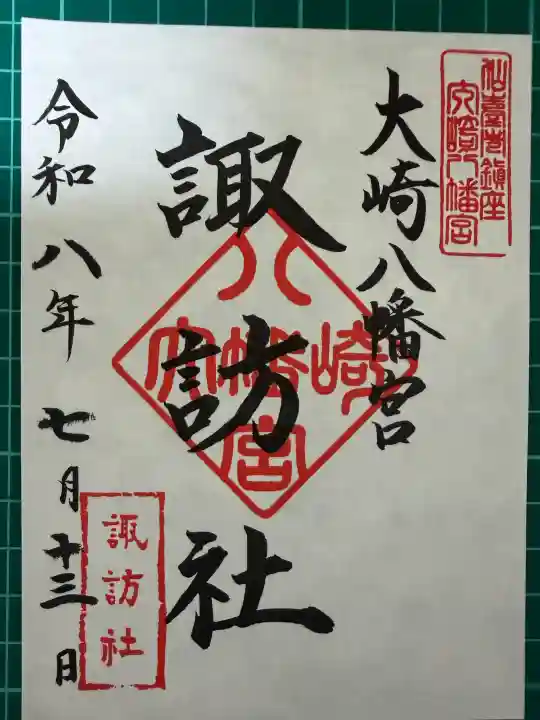 仙臺總鎮座
大崎八幡宮
大崎八幡宮
諏訪社
八
大幡崎
宮
令和八年七月十三日
諏訪社